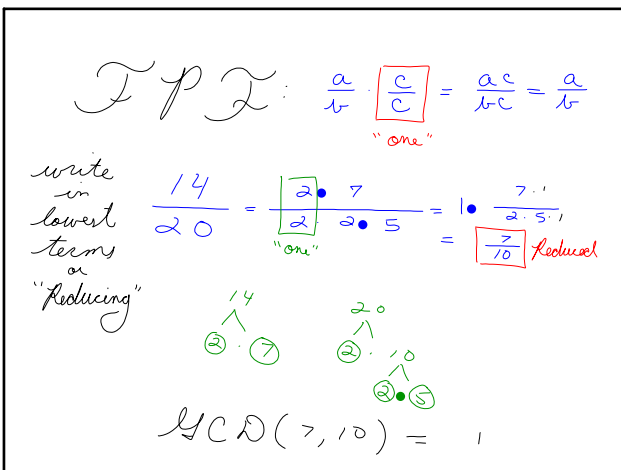 FPF: a/b · c/c = ac/bc = a/b
"one"
write in lowest terms or "Reducing"
14/20 = 2 • 7 / 2 · 2 • 5 = 1 • 7 · 1 / 2 · 5 · 1
"one"
= 7/10 Reduced
14
2 · 7
20
2 · 10
2 • 5
GCD(7,10) = 1